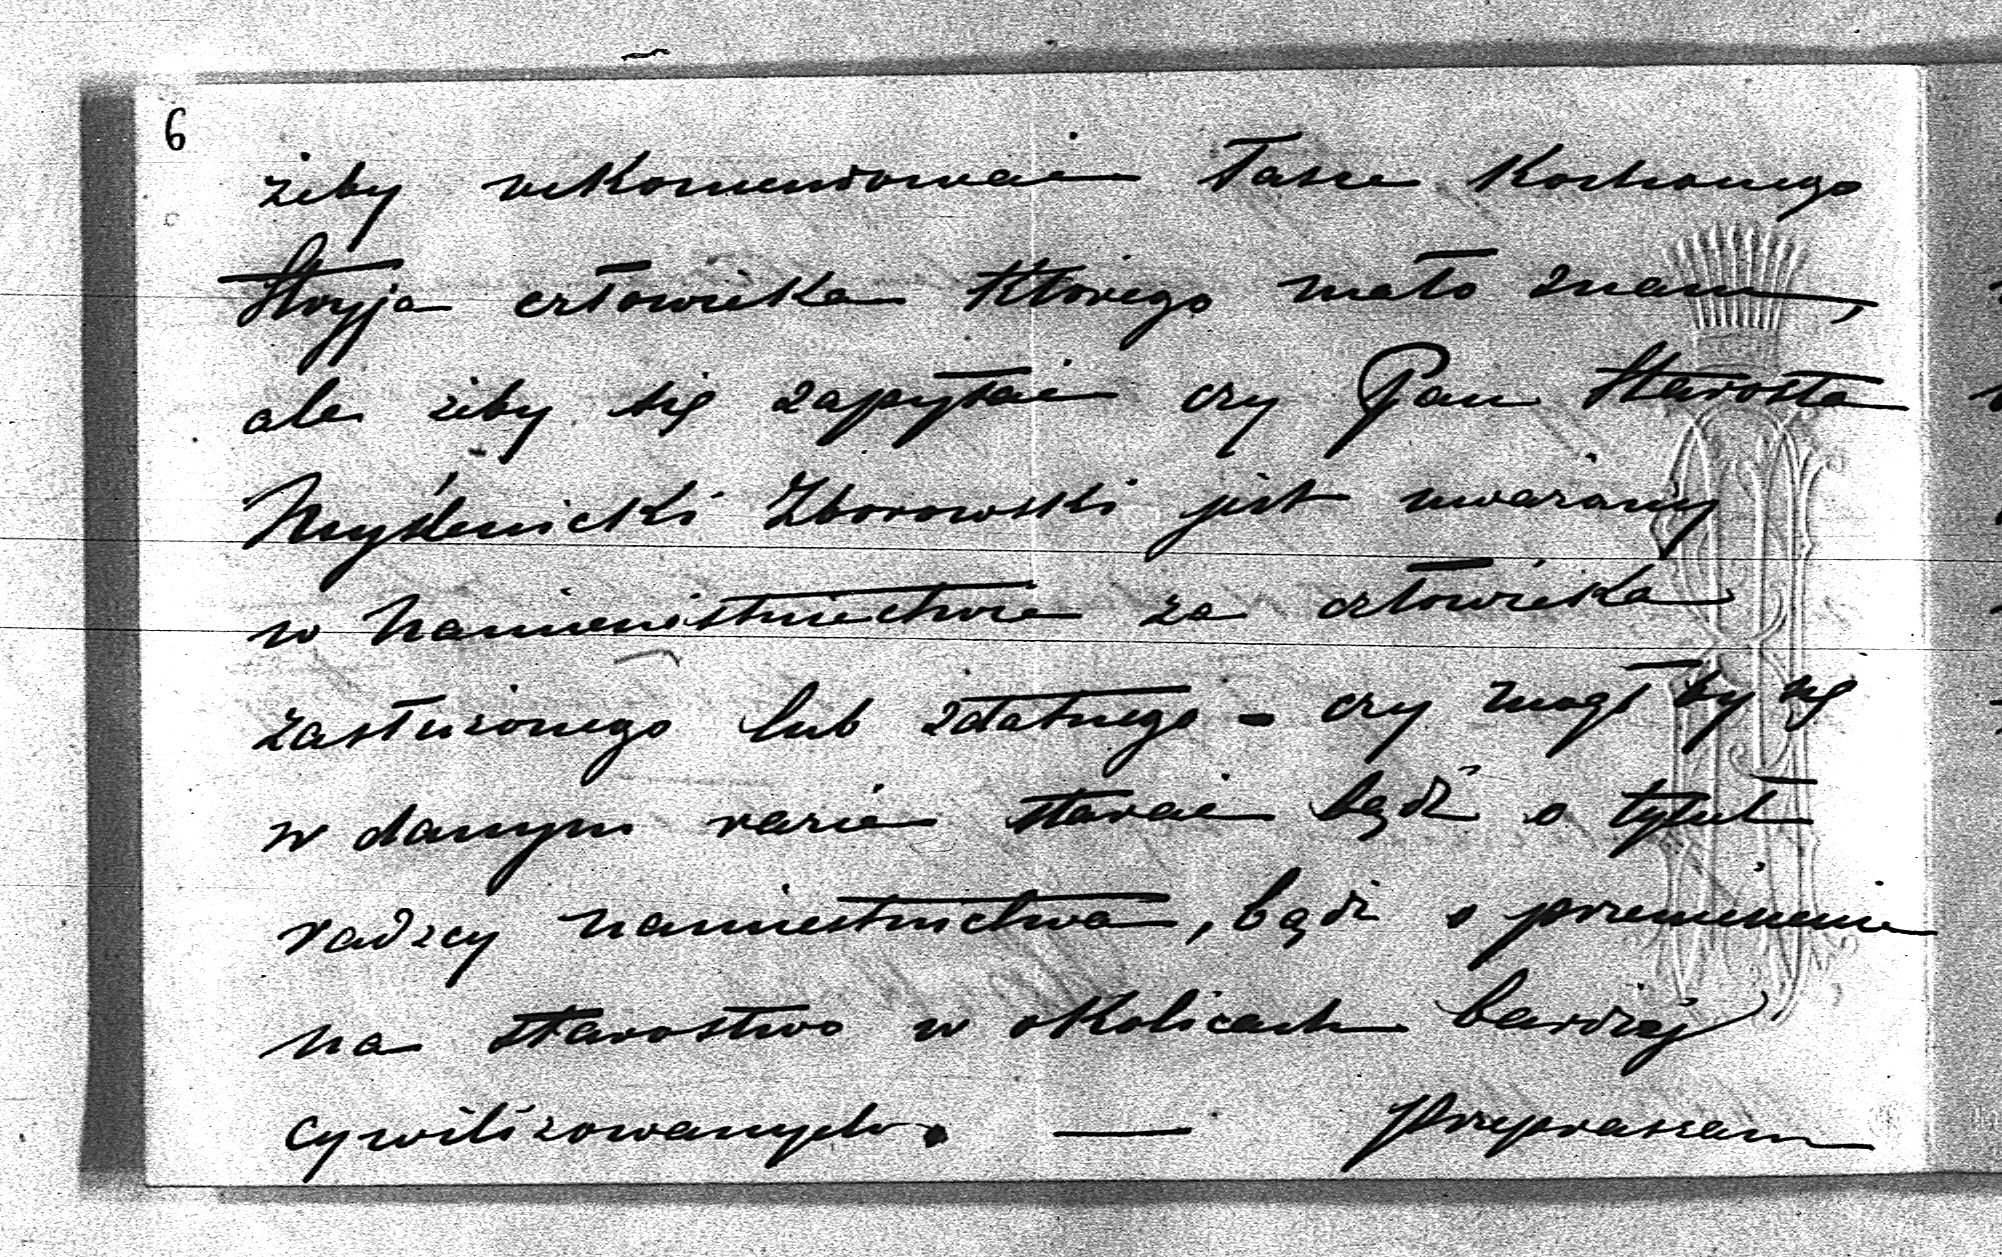 6
żeby rekomendować łasce Kochanego
Stryja człowieka którego mało znam,
ale żeby się zapytać czy Pan Starosta
Myślenicki Zborowski jest uważany
w Namienistniectwie za człowieka
zasłużonego lub zdatnego - czy mógł by się
w danym razie starać bądź o tytuł
radzcy namiestnictwa, bądź o przeniesienie
na starostwo w okolicach bardziej
cywilizowanych. — Przepraszam